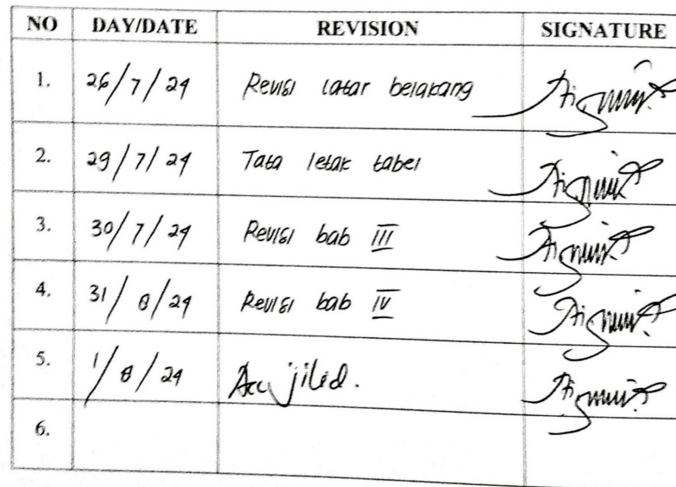 NO DAY/DATE REVISION SIGNATURE
1. 26/7/24 Revisi latar belakang
2. 29/7/24 Tata letak tabel
3. 30/7/24 Revisi bab III
4. 31/8/24 Revisi bab IV
5. 1/8/24 Acc jilid.
6.